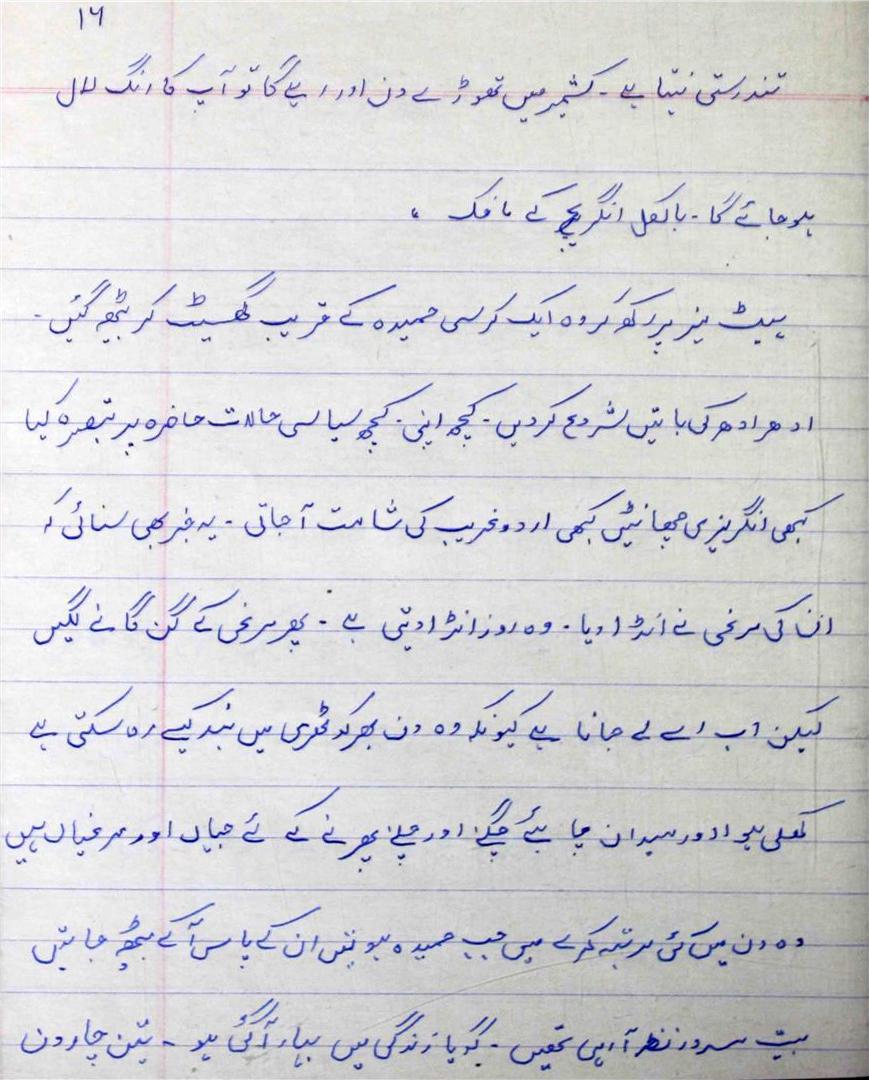 ۱۶
تندرستی بنتا ہے - کشمیر میں تھوڑے دن اور رہے گا تو آپ کا رنگ لال
ہو جائے گا - بالکل انگریج کے مافک ،
پلیٹ میز پر رکھ کر وہ ایک کرسی حمیدہ کے قریب گھسیٹ کر بیٹھ گئیں -
ادھر ادھر کی باتیں شروع کر دیں - کچھ اپنی - کچھ سیاسی حالات حاضرہ پر تبصرہ کیا
کبھی انگریزی چھانٹیں کبھی اردو غریب کی شامت آ جاتی - یہ خبر بھی سنائی کہ
ان کی مرغی نے انڈا دیا - وہ روز انڈا دیتی ہے - پھر مرغی کے گن گانے لگیں
لیکن اب اسے لے جانا ہے کیونکہ وہ دن بھر کوٹھری میں بند کیسے رہ سکتی ہے
کھلی ہوا اور میدان چاہئے چگنے اور چلنے پھرنے کے لئے جہاں اور مرغیاں ہیں
وہ دن میں کئی مرتبہ کمرے میں جب حمیدہ ہوتیں ان کے پاس آ کے بیٹھ جاتیں
بہت مسرور نظر آ رہی تھیں - گویا زندگی میں بہار آ گئی ہو - تین چار دن